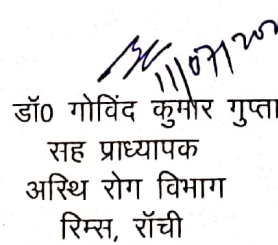 11/07/20
डॉ0 गोविंद कुमार गुप्ता
सह प्राध्यापक
अस्थि रोग विभाग
रिम्स, रॉची